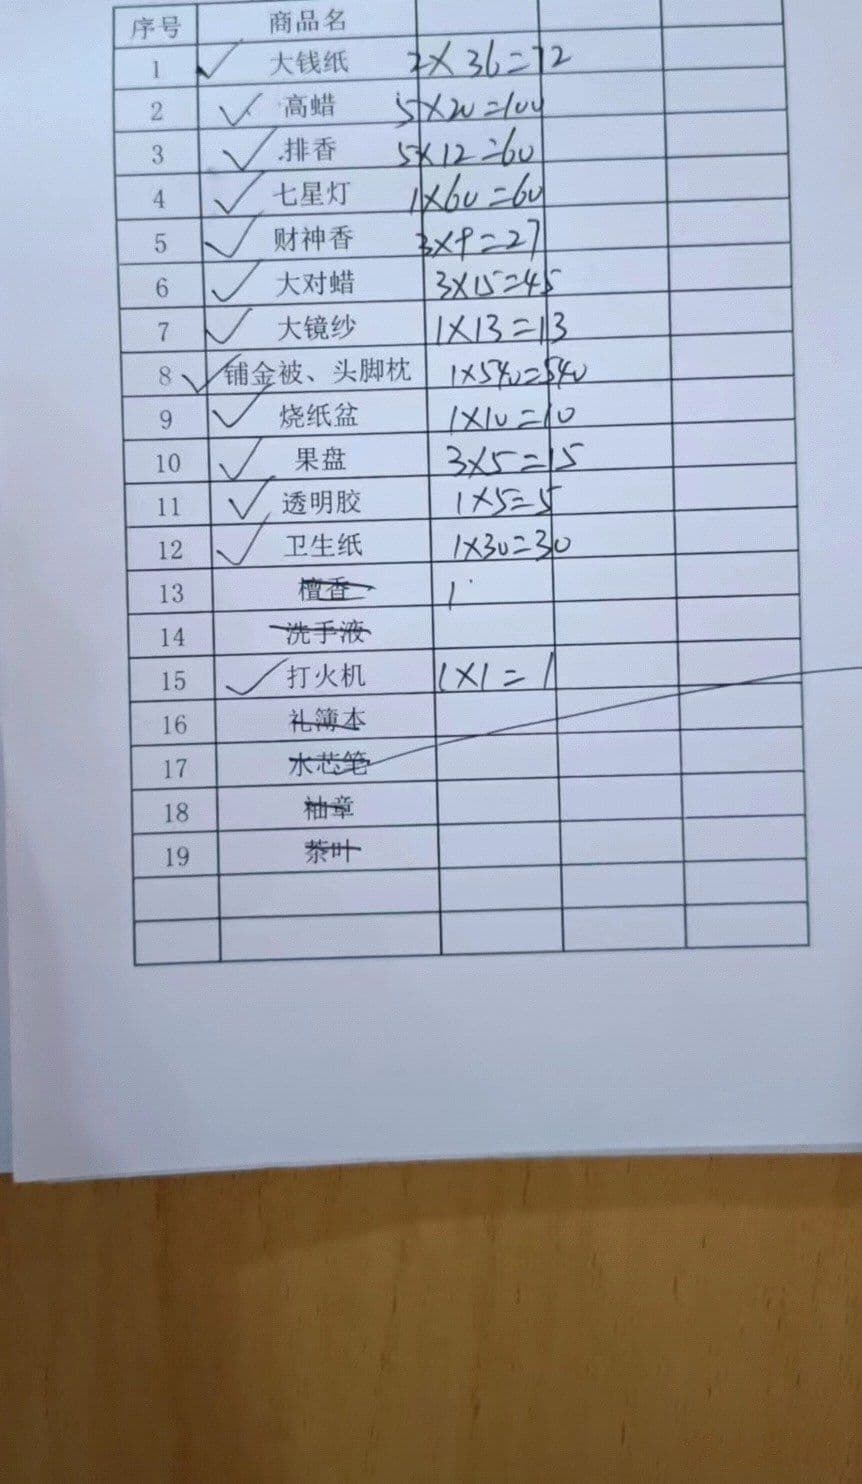 序号 商品名
1 大钱纸 2×36=72
2 高蜡 5×20=100
3 .排香 5×12=60
4 七星灯 1×60=60
5 财神香 3×9=27
6 大对蜡 3×15=45
7 大镜纱 1×13=13
8 铺金被、头脚枕 1×540=540
9 烧纸盆 1×10=10
10 果盘 3×5=15
11 透明胶 1×5=5
12 卫生纸 1×30=30
13 檀香 1
14 洗手液
15 打火机 1×1=1
16 礼簿本
17 水芯笔
18 袖章
19 茶叶